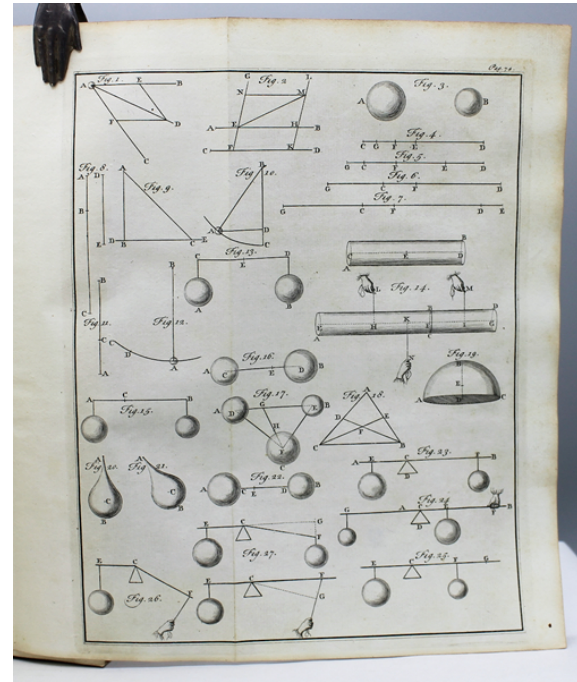 Pag. 72.
Fig. 1.
A E B
F D
C
Fig. 2
G L
N M
A E H B
C F K D
Fig. 3.
A B
Fig. 4.
C G F E D
Fig. 5.
G C F E D
Fig. 6.
G C F D
Fig. 7.
G C F D E
Fig. 8.
A D
B
E
C
Fig. 9.
A
D B C E
Fig. 10.
B
A D
C
Fig. 11.
B
C
A
Fig. 12.
B
D
A
Fig. 13.
C E D
A B
Fig. 14.
B
C E D
A
L M
B D
E K G
A H I C
N
Fig. 15.
A C B
Fig. 16.
A C E D B
Fig. 17.
A D G E B
H
F
C
Fig. 18.
A
D E
F
C B
Fig. 19.
B
E
A D C
Fig. 20.
A
C
B
Fig. 21.
A
C
B
Fig. 22.
A C E D B
Fig. 23.
A E C F B
D
Fig. 24
G A C E B
D F
Fig. 25.
E C F G
Fig. 26.
E C
F
Fig. 27.
E C G
F
E C F
G